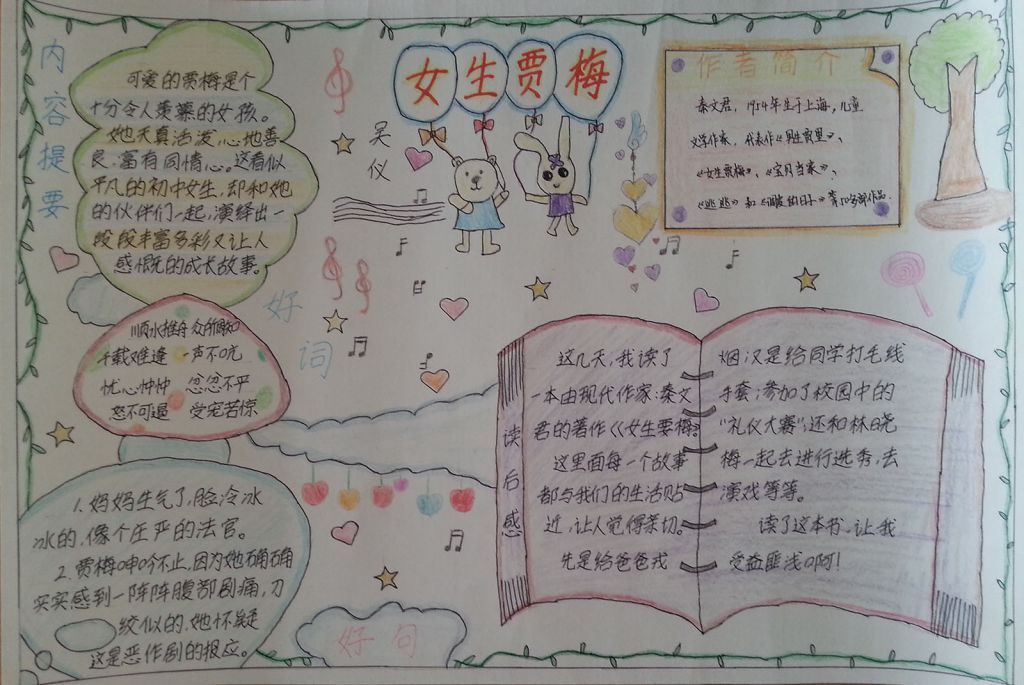 女生贾梅
吴仪
内容提要
可爱的贾梅是个
十分令人羡慕的女孩。
她天真活泼,心地善
良、富有同情心。这看似
平凡的初中女生,却和她
的伙伴们一起,演绎出一
段段丰富多彩又让人
感慨的成长故事。
作者简介
秦文君,1954年生于上海,儿童
文学作家,代表作《男生贾里》、
《女生贾梅》、《宝贝当家》、
《逃逃》和《调皮的日子》等50多部作品。
好词
顺水推舟 众所周知
千载难逢 一声不吭
忧心忡忡 忿忿不平
怒不可遏 受宠若惊
好句
1.妈妈生气了,脸冷冰
冰的,像个庄严的法官。
2.贾梅呻吟不止,因为她确确
实实感到一阵阵腹部剧痛,刀
绞似的,她怀疑
这是恶作剧的报应。
读后感
这几天,我读了
一本由现代作家:秦文
君的著作《女生贾梅》。
这里面每一个故事
都与我们的生活贴
近,让人觉得亲切。
先是给爸爸戒
烟;汉是给同学打毛线
手套;参加了校园中的
“礼仪大赛”;还和林晓
梅一起去进行选秀,去
演戏等等。
读了这本书,让我
受益匪浅啊!